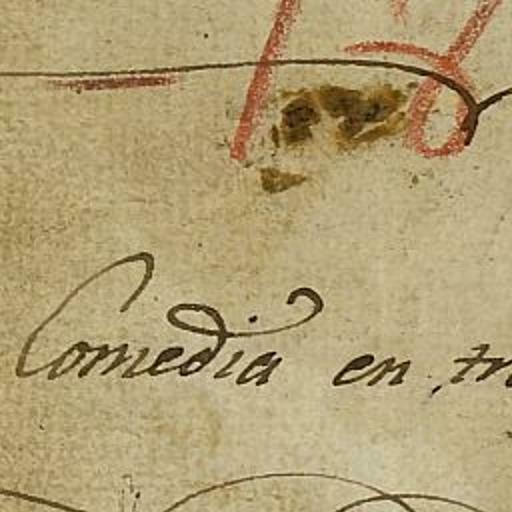 Comedia en tr